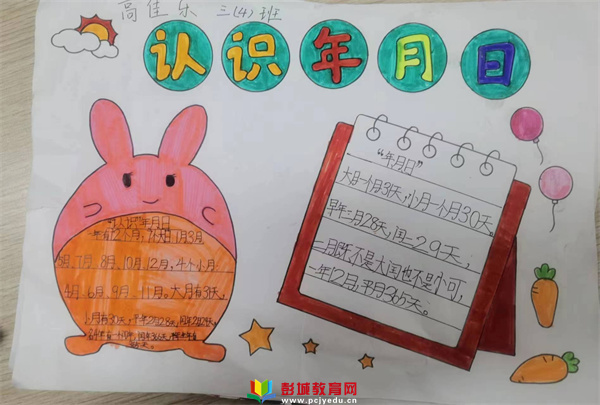 高佳乐 三(4)班
认识年月日
"认识"年月日
一年有12个月,7大月 1月3月
5月、7月、8月、10月12月,4个小月
4月、6月、9月、十一月。大月有31天,
小月有30天,
"年月日"
大月一个月31天,小月一个月30天。
平年二月28天,闰二29天;
二月既不是大月也不是小月,
一年12月,平月365天。
彭城教育网
www.pcjyedu.cn